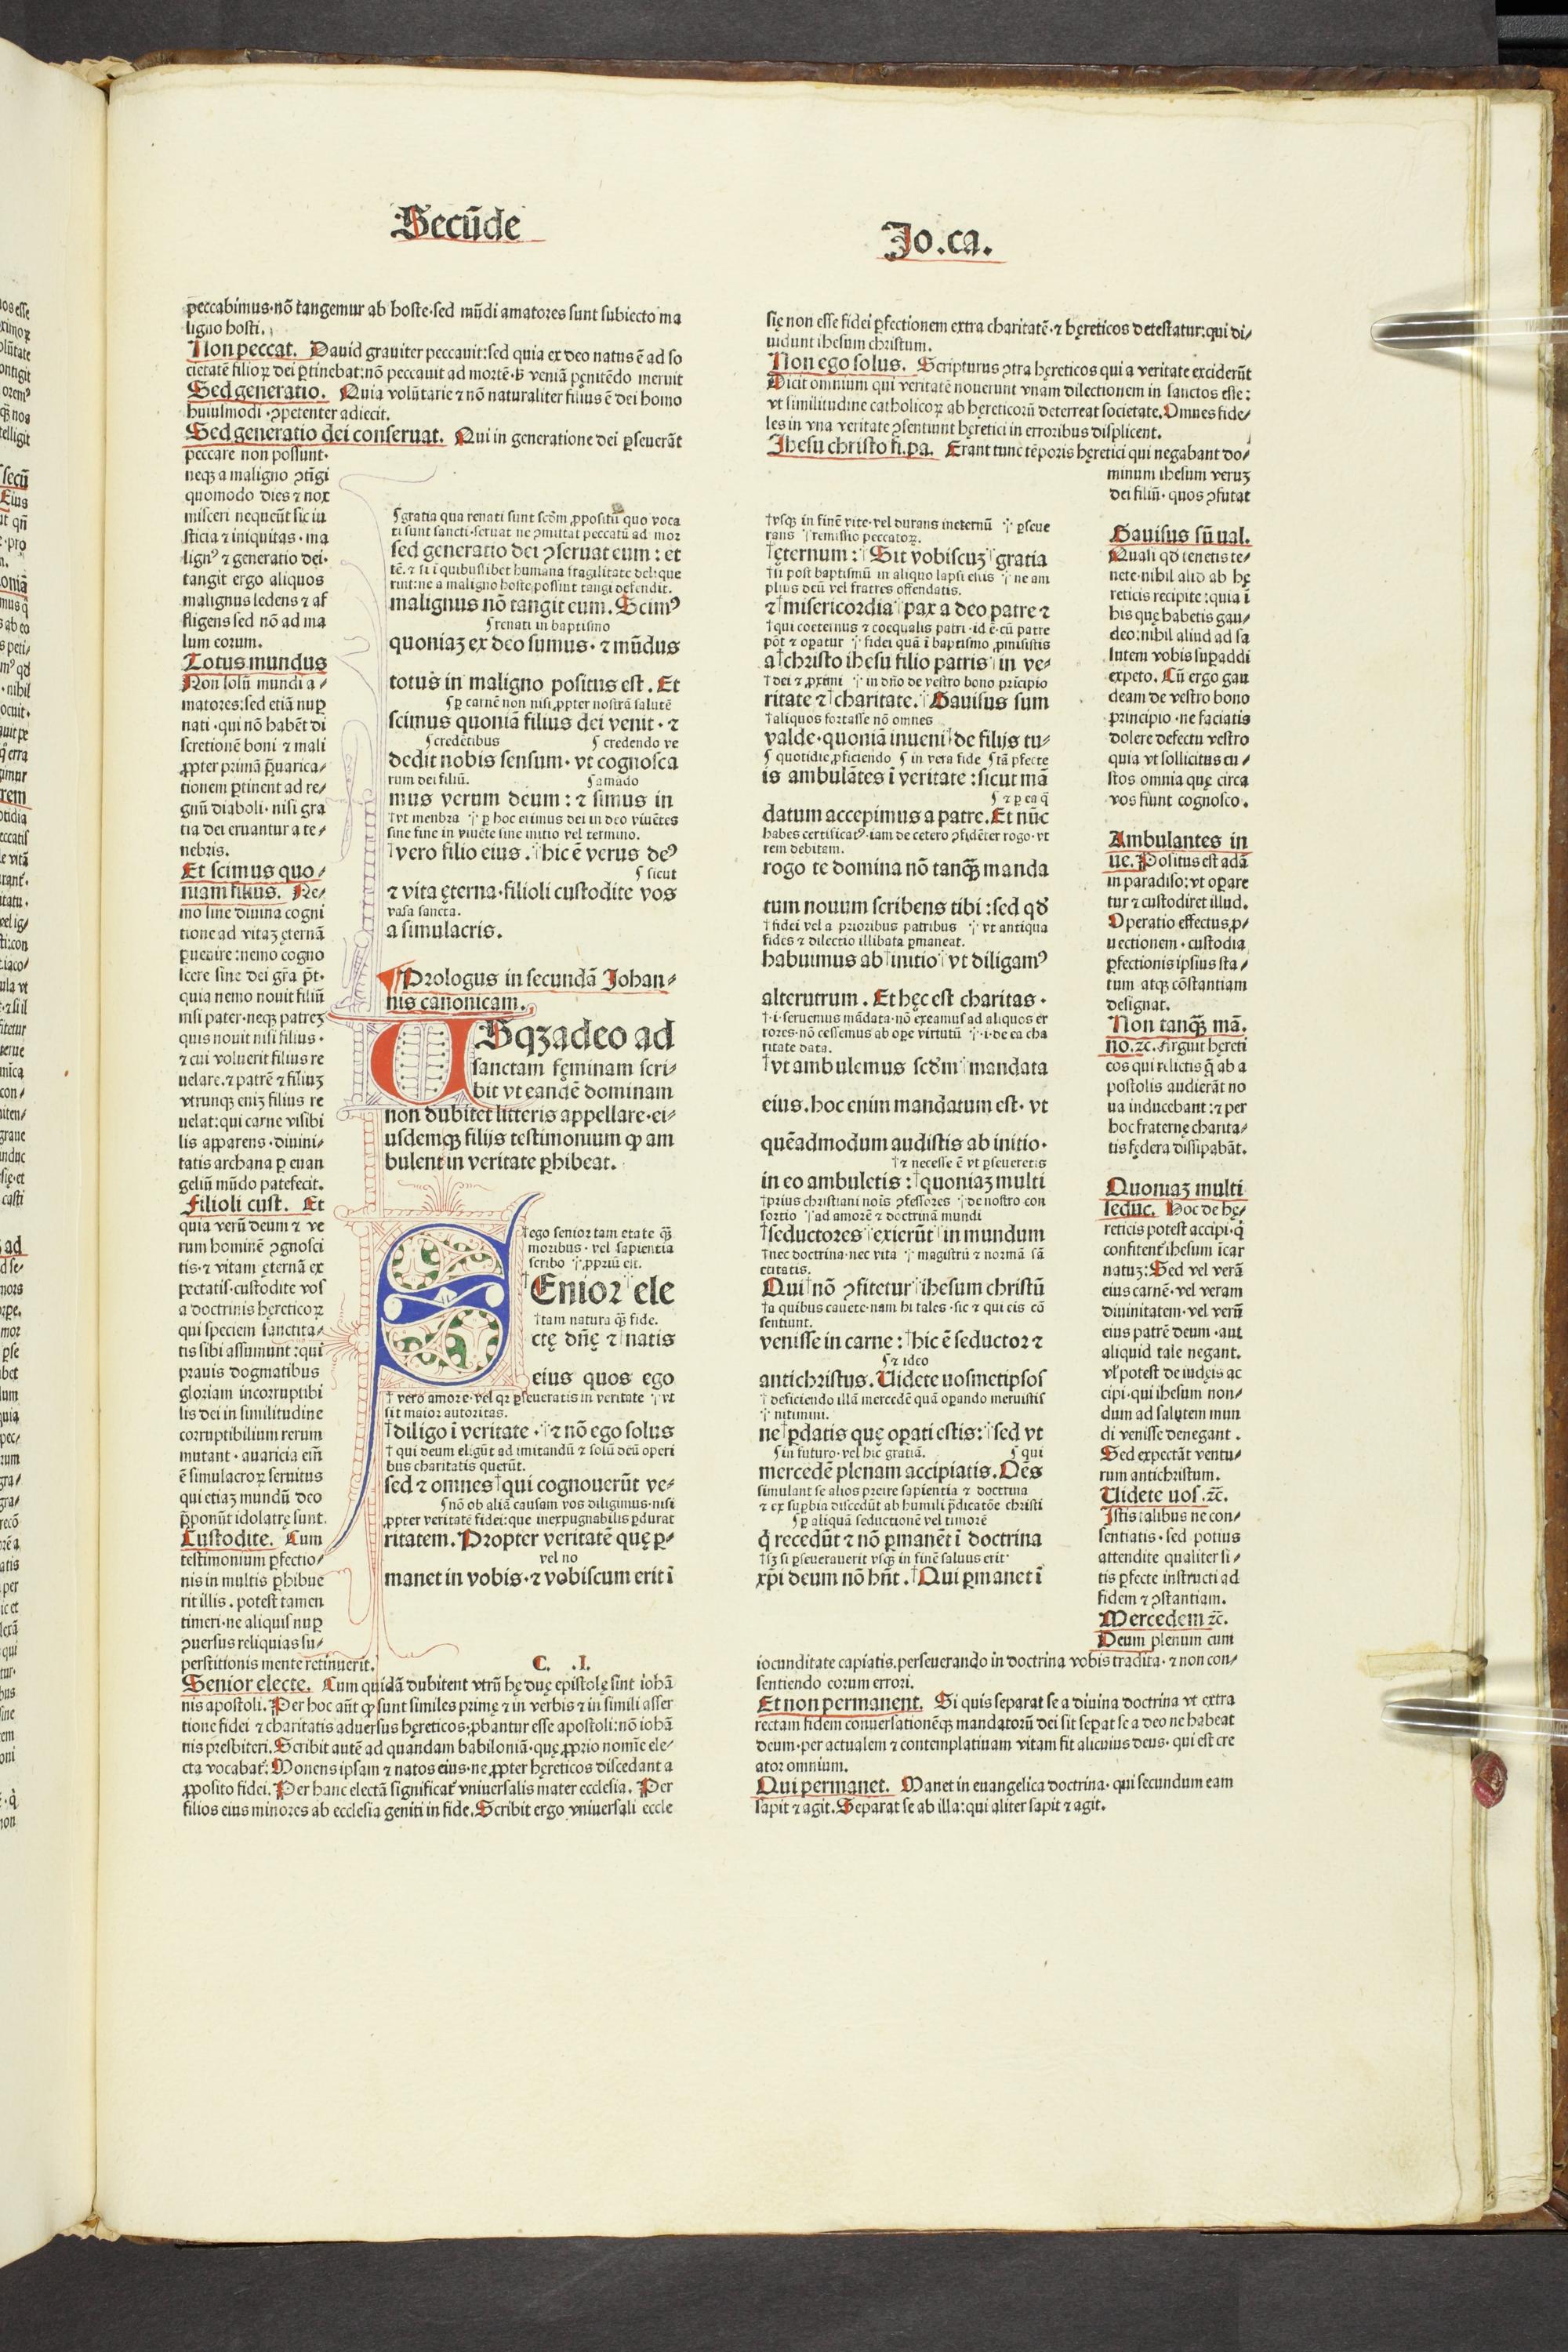 Secūde
Jo.ca.
peccabimus·nō tangemur ab hoste·sed mūdi amatores sunt subiecto ma
ligno hosti.
Non peccat. Dauid grauiter peccauit:sed quia ex deo natus ē ad so
cietatē filioꝝ dei ꝑtinebat:nō peccauit ad mortē·ſꝫ veniā pęnitēdo meruit
Sed generatio. Quia volūtarie ⁊ nō naturaliter filius ē dei homo
huiusmodi ·ꝯpetenter adiecit.
Sed generatio dei conseruat. Qui in generatione dei ꝑseuerāt
peccare non possunt·
neqꝫ a maligno ꝯtīgi
quomodo dies ⁊ nox
misceri nequeūt sic iu
sticia ⁊ iniquitas · ma
lignꝰ ⁊ generatio dei·
tangit ergo aliquos
malignus ledens ⁊ af
fligens sed nō ad ma
lum eorum.
Totus mundus
Non solū mundi a⸗
matores:sed etiā nuꝑ
nati ·qui nō habēt di
scretionē boni ⁊ mali
ꝓpter primā p̄uarica⸗
tionem ꝑtinent ad re⸗
gnū diaboli· nisi gra
tia dei eruantur a te⸗
nebris.
Et scimus quo⸗
niam filius. Ne⸗
mo sine diuina cogni
tione ad vitaꝫ ęternā
ꝑuenire:nemo cogno
scere sine dei gr̄a p̄t·
quia nemo nouit filiū
nisi pater·neqꝫ patreꝫ
quis nouit nisi filius ·
⁊ cui voluerit filius re
uelare.⁊ patrē ⁊ filiuꝫ
vtrunqꝫ eniꝫ filius re
uelat:qui carne visibi
lis apparens ·diuini⸗
tatis archana ꝑ euan
geliū mūdo patefecit.
Filioli cust. Et
quia verū deum ⁊ ve
rum hominē ꝯgnosci
tis·⁊ vitam ęternā ex
pectatis·custodite vos
a doctrinis hęreticoꝝ
qui speciem sanctita⸗
tis sibi assumunt:qui
prauis dogmatibus
gloriam incorruptibi
lis dei in similitudine
corruptibilium rerum
mutant · auaricia eiī
ē simulacroꝝ seruitus
qui etiaꝫ mundū deo
p̄ponūt idolatrę sunt.
Custodite. Cum
testimonium ꝑfectio⸗
nis in multis ꝑhibue
rit illis . potest tamen
timeri·ne aliquis nuꝑ
ꝯuersus reliquias su⸗
perstitionis mente retinuerit.
ꞩ gratia qua renati sunt scd̄m ꝓpositū quo voca
ti sunt sancti·seruat ne ꝯmittat peccatū ad mor
sed generatio dei ꝯseruat eum : et
tē.⁊ si ī quibuslibet humana fragilitate delique
rint:ne a maligno hoste possint tangi defendit.
malignus nō tangit eum. Scimꝰ
ꞩ renati in baptismo
quoniaꝫ ex deo sumus · ⁊ mūdus
totus in maligno positus est . Et
ꞩ ꝑ carnē non nisi ꝓpter nostrā salutē
scimus quoniā filius dei venit · ⁊
ꞩ credētibus ꞩ credendo ve
dedit nobis sensum · vt cognosca
rum dei filiū. ꞩ amādo
mus verum deum : ⁊ simus in
†vt membra ·|· ꝑ hoc enimus dei in deo viuētes
sine fine in viuēte sine initio vel termino.
†vero filio eius . †hic ē verus deꝰ
ꞩ sicut
⁊ vita ęterna·filioli custodite vos
vasa sancta.
a simulacris.
¶Prologus in secundā Johan⸗
nis canonicam.
USqꝫadeo ad
sanctam fęminam scri⸗
bit vt eandē dominam
non dubitet litteris appellare·ei⸗
usdemqꝫ filijs testimonium ꝙ am
bulent in veritate ꝑhibeat.
†ego senior tam etate qꝫ̄
moribus · vel sapientia
scribo ·|· ꝓpriū est.
†SEnior †ele
†tam natura qꝫ̄ fide.
ctę dn̄ę ⁊ †natis
eius quos ego
† vero amore·vel qꝛ ꝑseueratis in veritate ·|· vt
sit maior autoritas.
†diligo ī veritate . ·|· ⁊ nō ego solus
† qui deum eligūt ad imitandū ⁊ solū deū operi
bus charitatis querūt.
sed ⁊ omnes †qui cognouerūt ve⸗
ꞩ nō ob aliā causam vos diligimus·nisi
ꝓpter veritatē fidei:que inexpugnabilis ꝑdurat
ritatem. Propter veritatē quę ꝑ⸗
vel no
manet in vobis·⁊ vobiscum erit ī
C. .I.
Senior electe. Cum quidā dubitent vtrū hę duę epistolę sint iohā
nis apostoli. Per hoc aūt ꝙ sunt similes primę ⁊ in verbis ⁊ in simili asser
tione fidei ⁊ charitatis aduersus hęreticos:ꝓbantur esse apostoli:nō iohā
nis presbiteri. Scribit autē ad quandam babiloniā·quę ꝓprio nomīe ele⸗
cta vocabat᷑: Monens ipsam ⁊ natos eius·ne ꝓpter hęreticos discedant a
ꝓposito fidei. Per hanc electā significat᷑ vniuersalis mater ecclesia. Per
filios eius minores ab ecclesia geniti in fide. Scribit ergo vniuersali eccle
się non esse fidei ꝑfectionem extra charitatē·⁊ hęreticos detestatur:qui di⸗
uidunt ihesum christum.
Non ego solus. Scripturus ꝯtra hęreticos qui a veritate exciderūt
Dicit omnium qui veritatē nouerunt vnam dilectionem in sanctos esse:
vt similitudine catholicoꝝ ab hęreticorū deterreat societate. Omnes fide⸗
les in vna veritate ꝯsentiunt hęretici in erroribus displicent.
Ihesu christo fi.pa. Erant tunc tēporis hęretici qui negabant do⸗
minum ihesum veruꝫ
dei filiū· quos ꝯfutat
†vsqꝫ in finē vite·vel durans ineternū ·|· ꝑseue
rans ·|· remissio peccatoꝝ.
†ęternum : †Sit vobiscuꝫ †gratia
†ii post baptismū in aliquo lapsi estis ·|· ne am
plius deū vel fratres offendatis.
⁊ †misericordia †pax a deo patre ⁊
†qui coeternus ⁊ coequalis patri ·id ē·cū patre
pōt ⁊ oꝑatur ·|· fidei quā ī baptismo ꝓmisistis
a †christo ihesu filio patris †in ve⸗
† dei ⁊ ꝓximi ·|· in dn̄o de vestro bono pricipio
ritate ⁊ †charitate. †Gauisus sum
†aliquos fortasse nō omnes
valde·quoniā inueni †de filijs tu⸗
ꞩ quotidie ꝓficiendo ꞩ in vera fide ꞩ tā ꝑfecte
is ambulātes ī veritate :sicut mā
ꞩ ⁊ ꝑ ea q̄
datum accepimus a patre. Et nūc
habes certificatꝰ·iam de cetero ꝯfidēter rogo·vt
rem debitam.
rogo te domina nō tanqꝫ̄ manda
tum nouum scribens tibi :sed qd̄
† fidei vel a prioribus patribus ·|· vt antiqua
fides ⁊ dilectio illibata ꝑmaneat.
habuimus ab †initio †vt diligamꝰ
alterutrum . Et hęc est charitas ·
†·i·seruemus mādata·nō exeamus ad aliquos er
rores·nō cessemus ab oꝑe virtutū ·|· ·i·de ea cha
ritate data.
†vt ambulemus scd̄m †mandata
eius.hoc enim mandatum est· vt
quēadmodum audistis ab initio·
†⁊ necesse ē vt ꝑseueretis
in eo ambuletis : †quoniaꝫ multi
†prius christiani noīs ꝯfessores ·|· de nostro con
sortio ·|· ad amorē ⁊ doctrinā mundi
†seductores †exierūt †in mundum
†nec doctrina·nec vita ·|· magistrū ⁊ normā sā
ctitatis.
Qui †nō ꝯfitetur †ihesum christū
†a quibus cauete·nam hi tales ·sic ⁊ qui eis cō
sentiunt.
venisse in carne : †hic ē seductor ⁊
ꞩ ⁊ ideo
antichristus. Uidete uosmetipsos
† deficiendo illā mercedē quā oꝑando meruistis
·|· nitimini.
ne †ꝑdatis quę oꝑati estis: †sed vt
ꞩ in futuro·vel hic gratiā. ꞩ qui
mercedē plenam accipiatis. Oēs
simulant se alios preire sapientia ⁊ doctrina
⁊ ex suꝑbia discedūt ab humili p̄dicatōe christi
ꞩ ꝑ aliquā seductionē vel timorē
q̇ recedūt ⁊ nō ꝑmanēt ī doctrina
†sꝫ si ꝑseuerauerit vsqꝫ in finē saluus erit·
xp̄i deum nō hn̄t . †Qui ꝑmanet ī
Gauisus sū ual.
Quali qd̄ tenetis te⸗
nete·nihil aliō ab hę
reticis recipite :quia ī
his quę habetis gau⸗
deo:nihil aliud ad sa
lutem vobis suꝑaddi
expeto. Cū ergo gau
deam de vestro bono
principio ·ne faciatis
dolere defectu vestro
quia vt sollicitus cu⸗
stos omnia quę circa
vos fiunt cognosco .
Ambulantes in
ue. Positus est adā
in paradiso: vt oꝑare
tur ⁊ custodiret illud.
Operatio effectus ꝓ⸗
uectionem · custodia
ꝑfectionis ipsius sta⸗
tum atqꝫ cōstantiam
designat.
Non tanqꝫ̄ mā.
no. ⁊c. Arguit hęreti
cos qui relictis q̄ ab a
postolis audierāt no
ua inducebant :⁊ per
hoc fraternę charita⸗
tis fędera dissipabāt.
Quoniaꝫ multi
seduc. Hoc de hę⸗
reticis potest accipi·q̇
confitent᷑ ihesum īcar
natuꝫ: Sed vel verā
eius carnē· vel veram
diuinitatem·vel verū
eius patrē deum ·aut
aliquid tale negant.
vl̓ potest de iudęis ac
cipi·qui ihesum non⸗
dum ad salutem mun
di venisse denegant .
Sed expectāt ventu⸗
rum antichristum.
Uidete uos .⁊c.
Istis talibus ne con⸗
sentiatis · sed potius
attendite qualiter si⸗
tis ꝑfecte instructi ad
fidem ⁊ ꝯstantiam.
Mercedem ⁊c.
Deum plenum cum
iocunditate capiatis.perseuerando in doctrina vobis tradita · ⁊ non con⸗
sentiendo eorum errori.
Et non permanent. Si quis separat se a diuina doctrina vt extra
rectam fidem conuersationēqꝫ mandatorū dei sit seꝑat se a deo ne habeat
deum·per actualem ⁊ contemplatiuam vitam fit alicuius deus· qui est cre
ator omnium.
Qui permanet. Manet in euangelica doctrina· qui secundum eam
sapit ⁊ agit. Separat se ab illa:qui aliter sapit ⁊ agit.